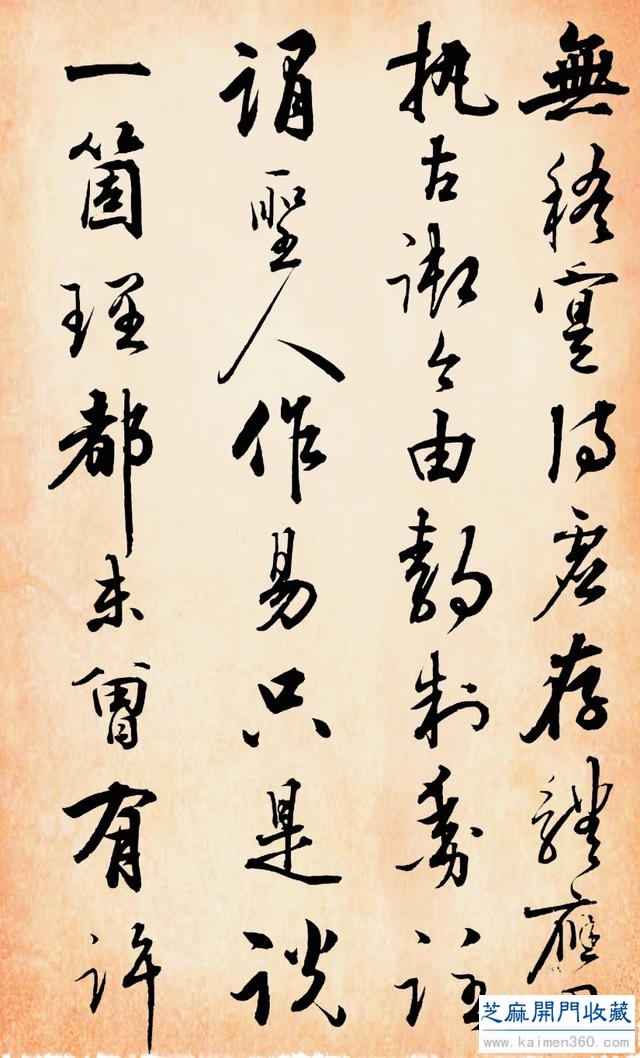 無稽實待虛存體應
執古御今由靜制動註
謂聖人作易只是說
一箇理都未曾有許
芝麻開門收藏
www.kaimen360.com